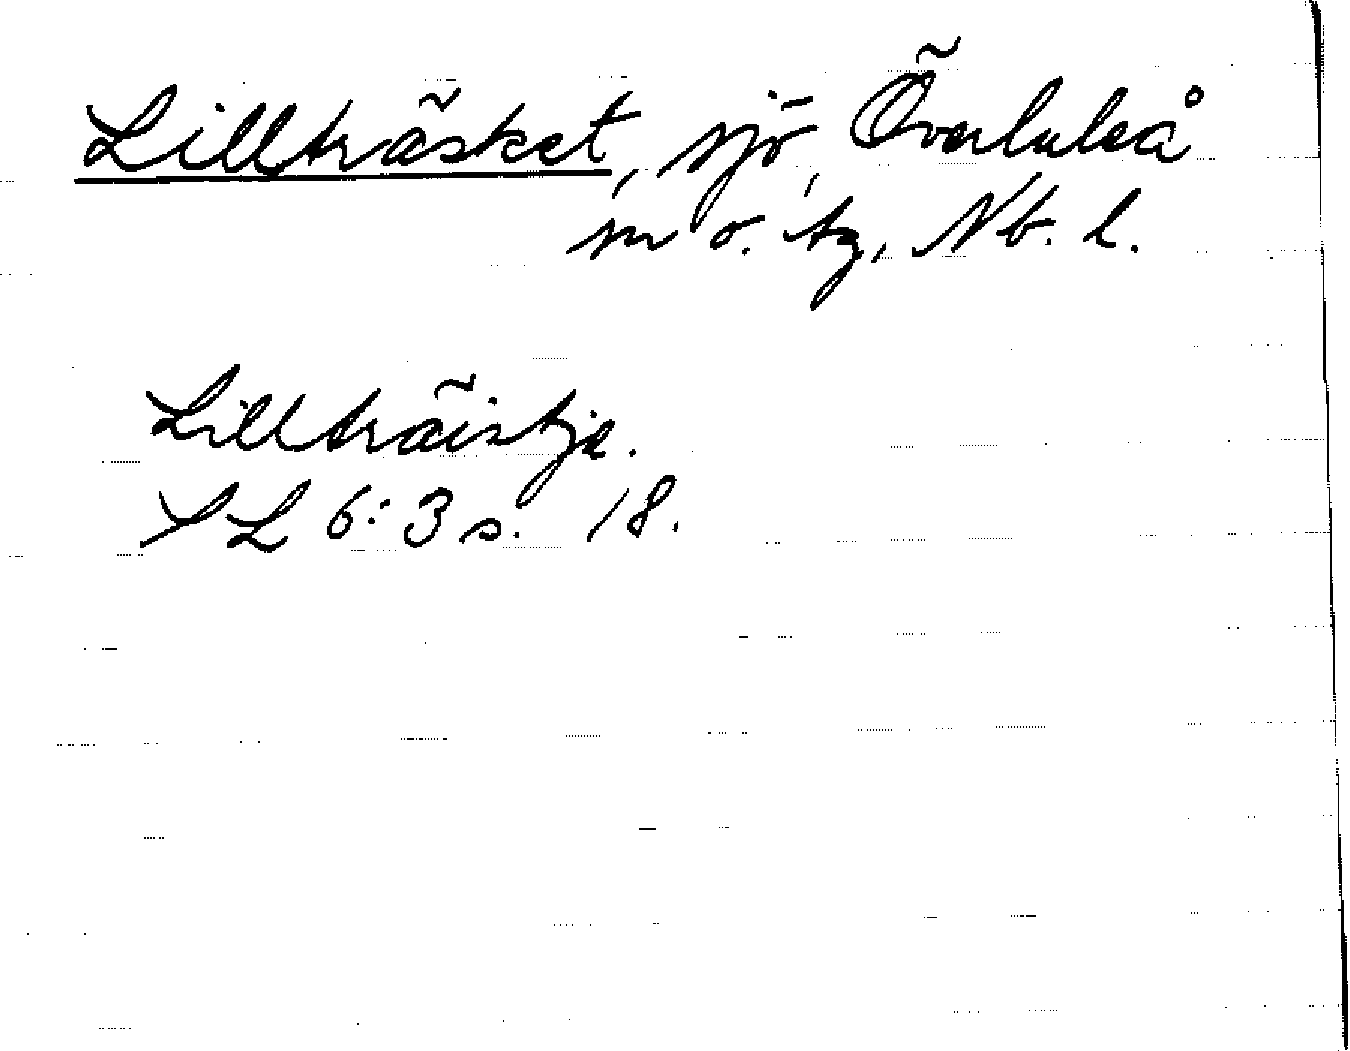 Lillträsket, sjö, Överluleå
sn o. tg, Nb. l.
Lillträistje.
SL 6:3 s. 18.